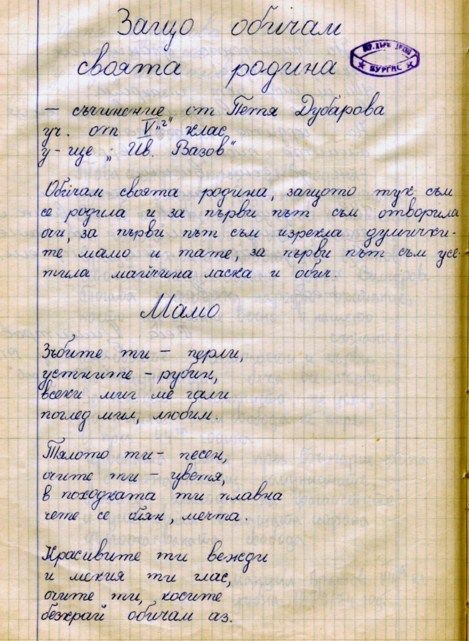 Защо обичам
своята родина
БУРГАС
– съчинение от Петя Дубарова
уч. от V "г" клас
у-ще "Ив. Вазов"
Обичам своята родина, защото тук съм
се родила и за първи път съм отворила
очи, за първи път съм изрекла думички-
те мамо и тате, за първи път съм усе-
тила майчина ласка и обич.
Мамо
Зъбите ти – перли,
устните – рубин,
всеки миг ме гали
поглед мил, любим.
Тялото ти – песен,
очите ти – цветя,
в походката ти плавна
чете се блян, мечта.
Красивите ти вежди
и мекия ти глас,
очите ти, косите
безкрай обичам аз.